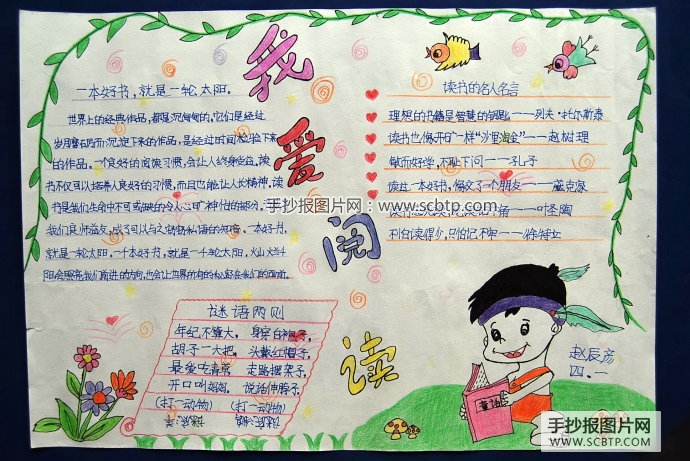 我爱阅读
一本好书，就是一轮太阳。
世界上的经典作品，都是沉甸甸的，它们是经过
岁月磨石而沉淀下来的作品，是经过时间检验下来
的作品。一个良好的阅读习惯，会让人终身受益。读
书不仅可以培养人良好的习惯，而且也能让人长精神。读
书是我们生命中不可或缺的
我们良师益友，成了可以与之窃窃私语的知音。一本好书，
就是一轮太阳。一千本好书，就是一千轮太阳。
阳会照亮我们前进的方向，也会让世界所有的秘密在我们的面前
读书的名人名言
理想的书籍是智慧的钥匙——列夫·托尔斯泰
读书也像开矿一样“沙里淘金”——赵树理
敏而好学，不耻下问——孔子
读过一本好书，像交了个朋友——臧克家
叶圣陶
徐特立
谜语两则
年纪不算大，身穿白袍子，
胡子一大把。头戴红帽子，
最爱吃青草，走路摆架子，
开口叫妈妈。说话伸脖子。
(打一动物) (打一动物)
赵辰彦
四．一
童话
手抄报图片网——www.scbtp.com
手抄报图片网
WWW.SCBTP.COM